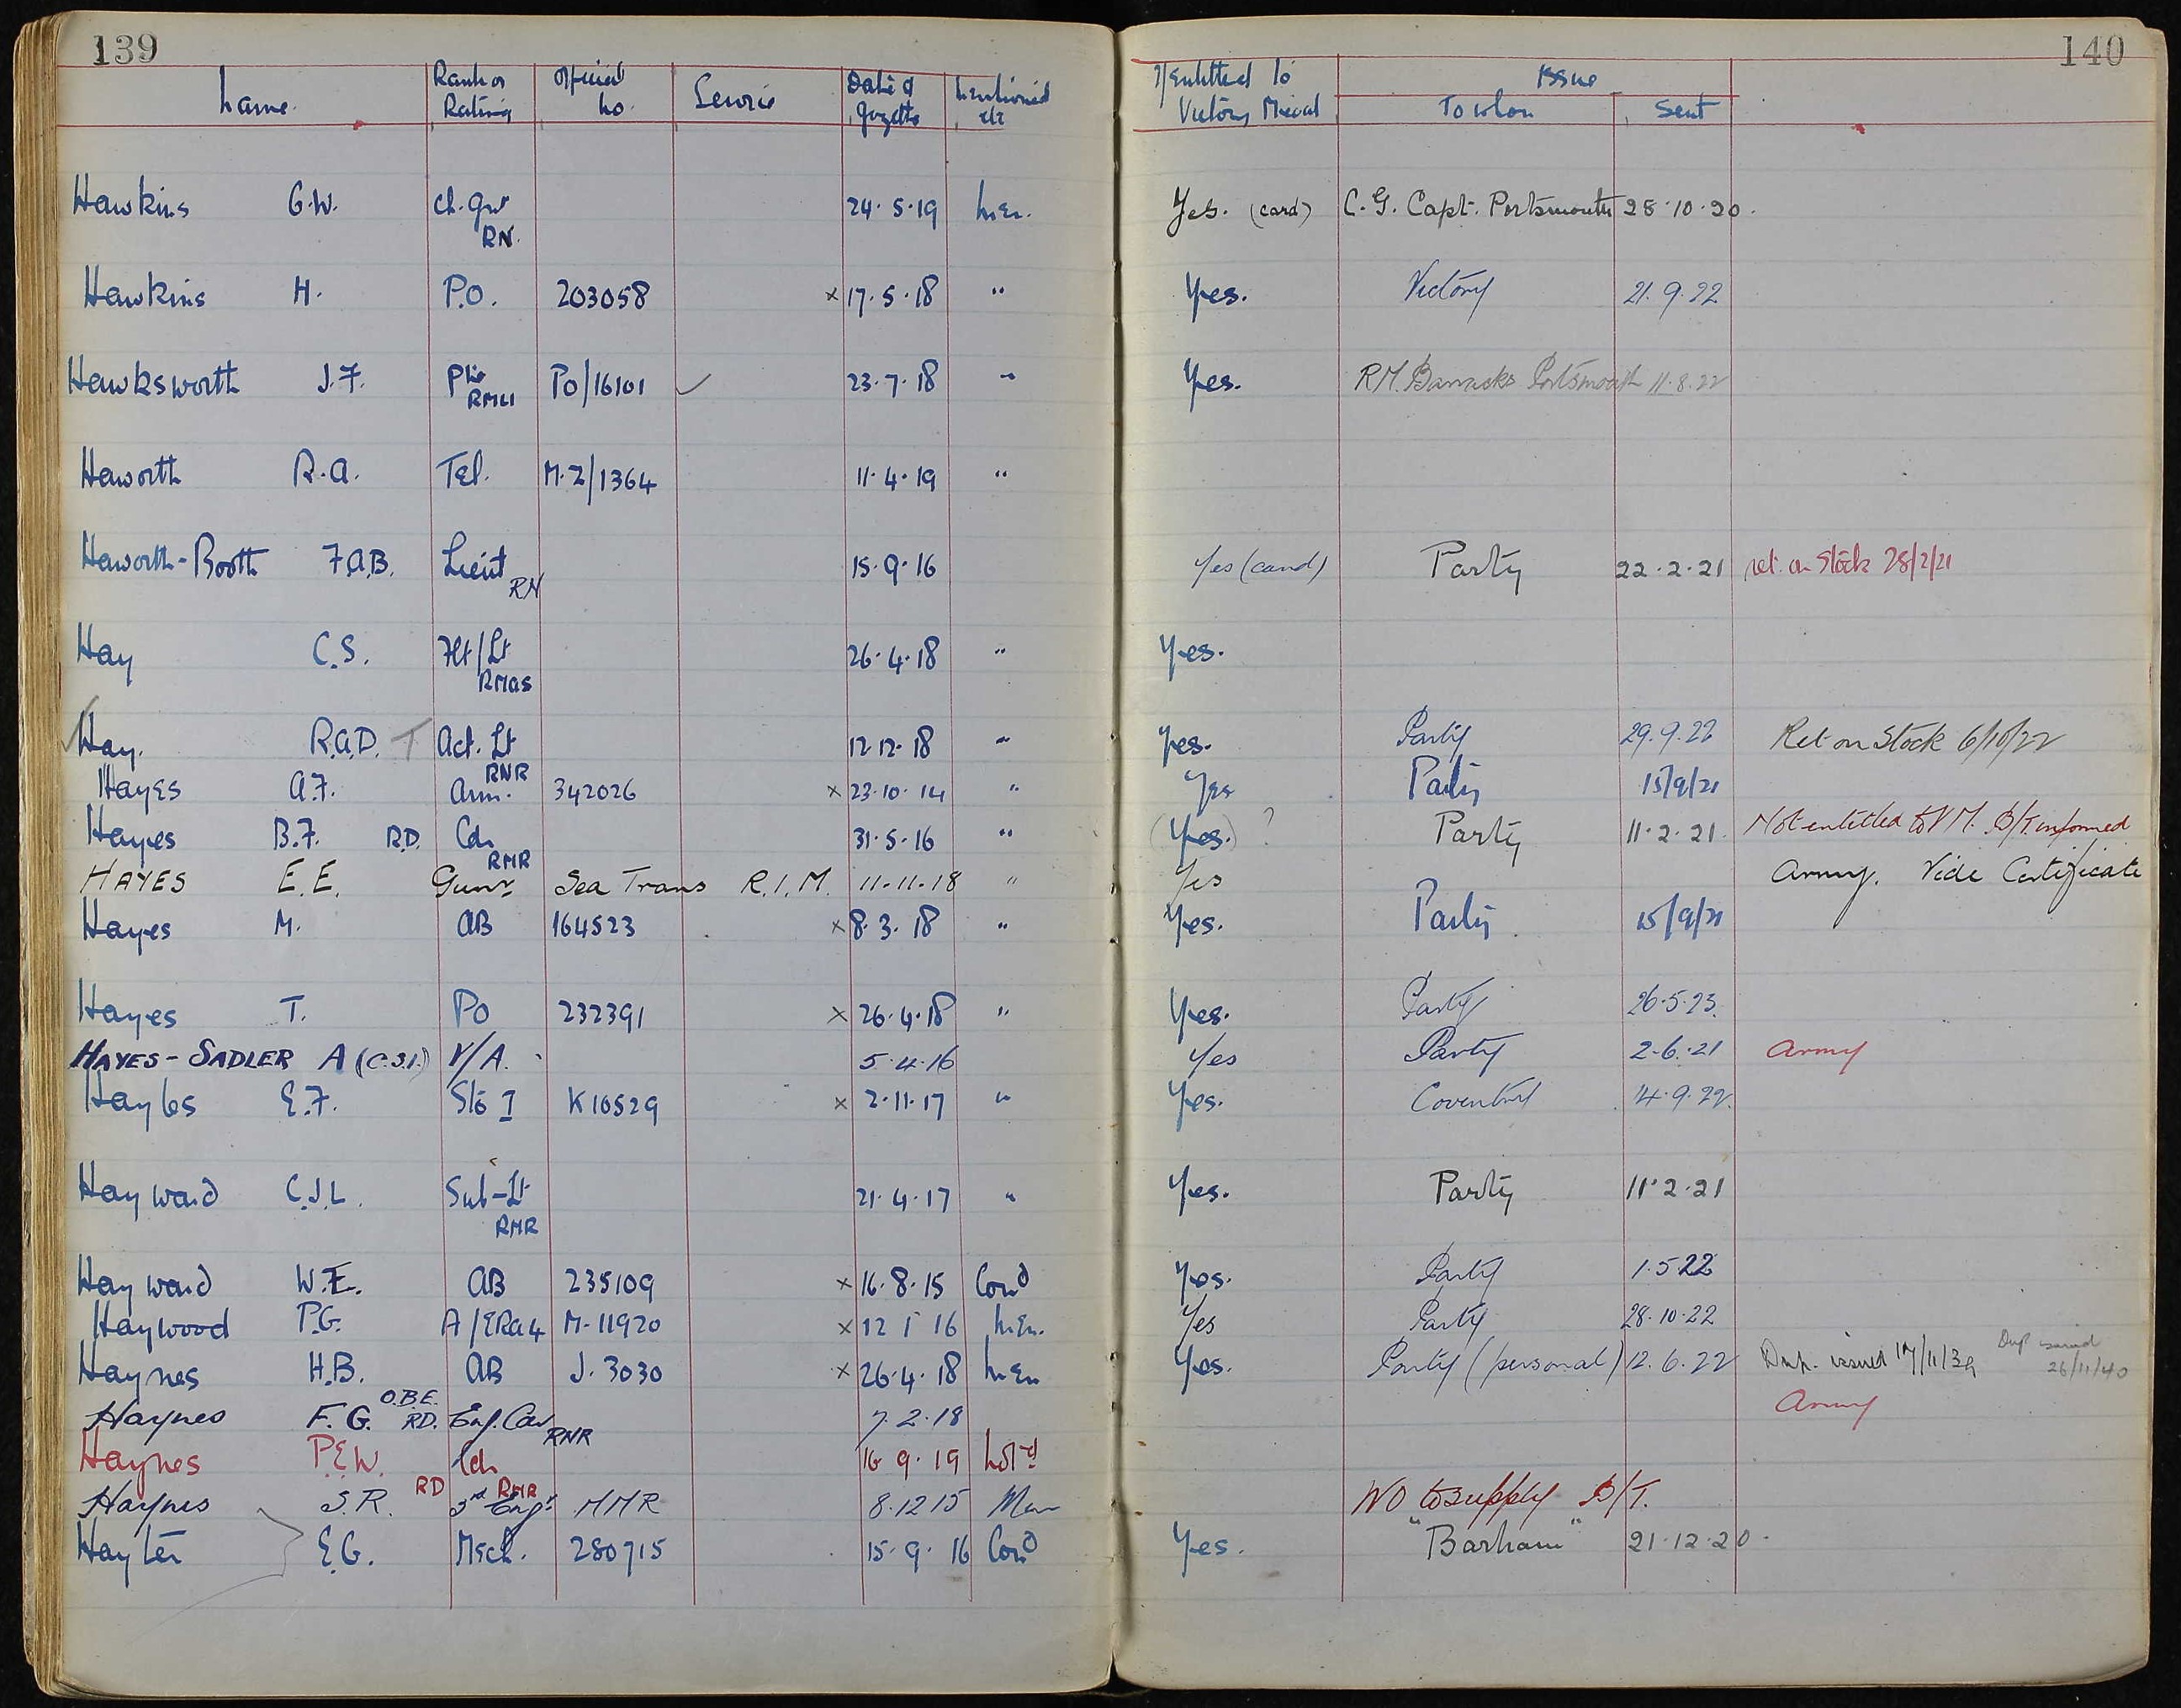 139
140
Name. Rank or Rating Official No. Service Date of Gazette Mentioned etc If Entitled to Victory Medal Issue To whom Sent
Hawkins G.W. Ch. Gnr RN. 24.5.19 Men. Yes. (card) C.G. Capt. Portsmouth 28.10.20.
Hawkins H. P.O. 203058 x 17.5.18 " Yes. Victory 21.9.22
Hawksworth J.F. Pte RMLI Po/16101 ✓ 23.7.18 " Yes. R.M. Barracks Portsmouth 11.8.22
Haworth R.A. Tel. M.Z/1364 11.4.19 "
Haworth-Booth F.A.B. Lieut RN 15.9.16 Yes (card) Party 22.2.21 ret. on Stock 28/2/21
Hay C.S. Flt/Lt RNAS 26.4.18 " Yes.
Hay. R.A.D. T Act. Lt RNR 12.12.18 " Yes. Party 29.9.22 Ret on Stock 6/10/22
Hayes A.F. Arm. 342026 x 23.10.14 " Yes Party 15/9/21
Hayes B.F. R.D. Cdr RNR 31.5.16 " (Yes.) ? Party 11.2.21. Not entitled to V.M. B/T informed
HAYES E.E. Gunr Sea Trans R.I.M. 11.11.18 " Yes Army. Vide Certificate
Hayes M. AB 164523 x 8.3.18 " Yes. Party 15/9/21
Hayes T. PO 232391 x 26.4.18 " Yes. Party 26.5.23.
HAYES-SADLER A (C.S.I.) V/A. 5.4.16 Yes Party 2.6.21 Army
Hayles E.F. Sto I K10529 x 2.11.17 " Yes. Coventry 14.9.22.
Hayward C.J.L. Sub-Lt RNR 21.4.17 " Yes. Party 11.2.21
Hayward W.E. AB 235109 x 16.8.15 Comd Yes. Party 1.5.22
Haywood P.G. A/ERA 4 M.11920 x 12 1 16 Men. Yes Party 28.10.22
Haynes H.B. AB J.3030 x 26.4.18 Men Yes. Party (personal) 12.6.22 Dup. issued 17/11/39 Dup issued 26/11/40
Haynes F.G. O.B.E. RD. Eng. Cdr RNR 7.2.18 Army
Haynes P.E.W. RD Cdr RNR 16 9.19 Notd
Haynes S.R. 3rd Engr MMR 8.12 15 Men WO to supply B/T.
Hayter E.G. Mech. 280715 15.9.16 Comd Yes. "Barham" 21.12.20.